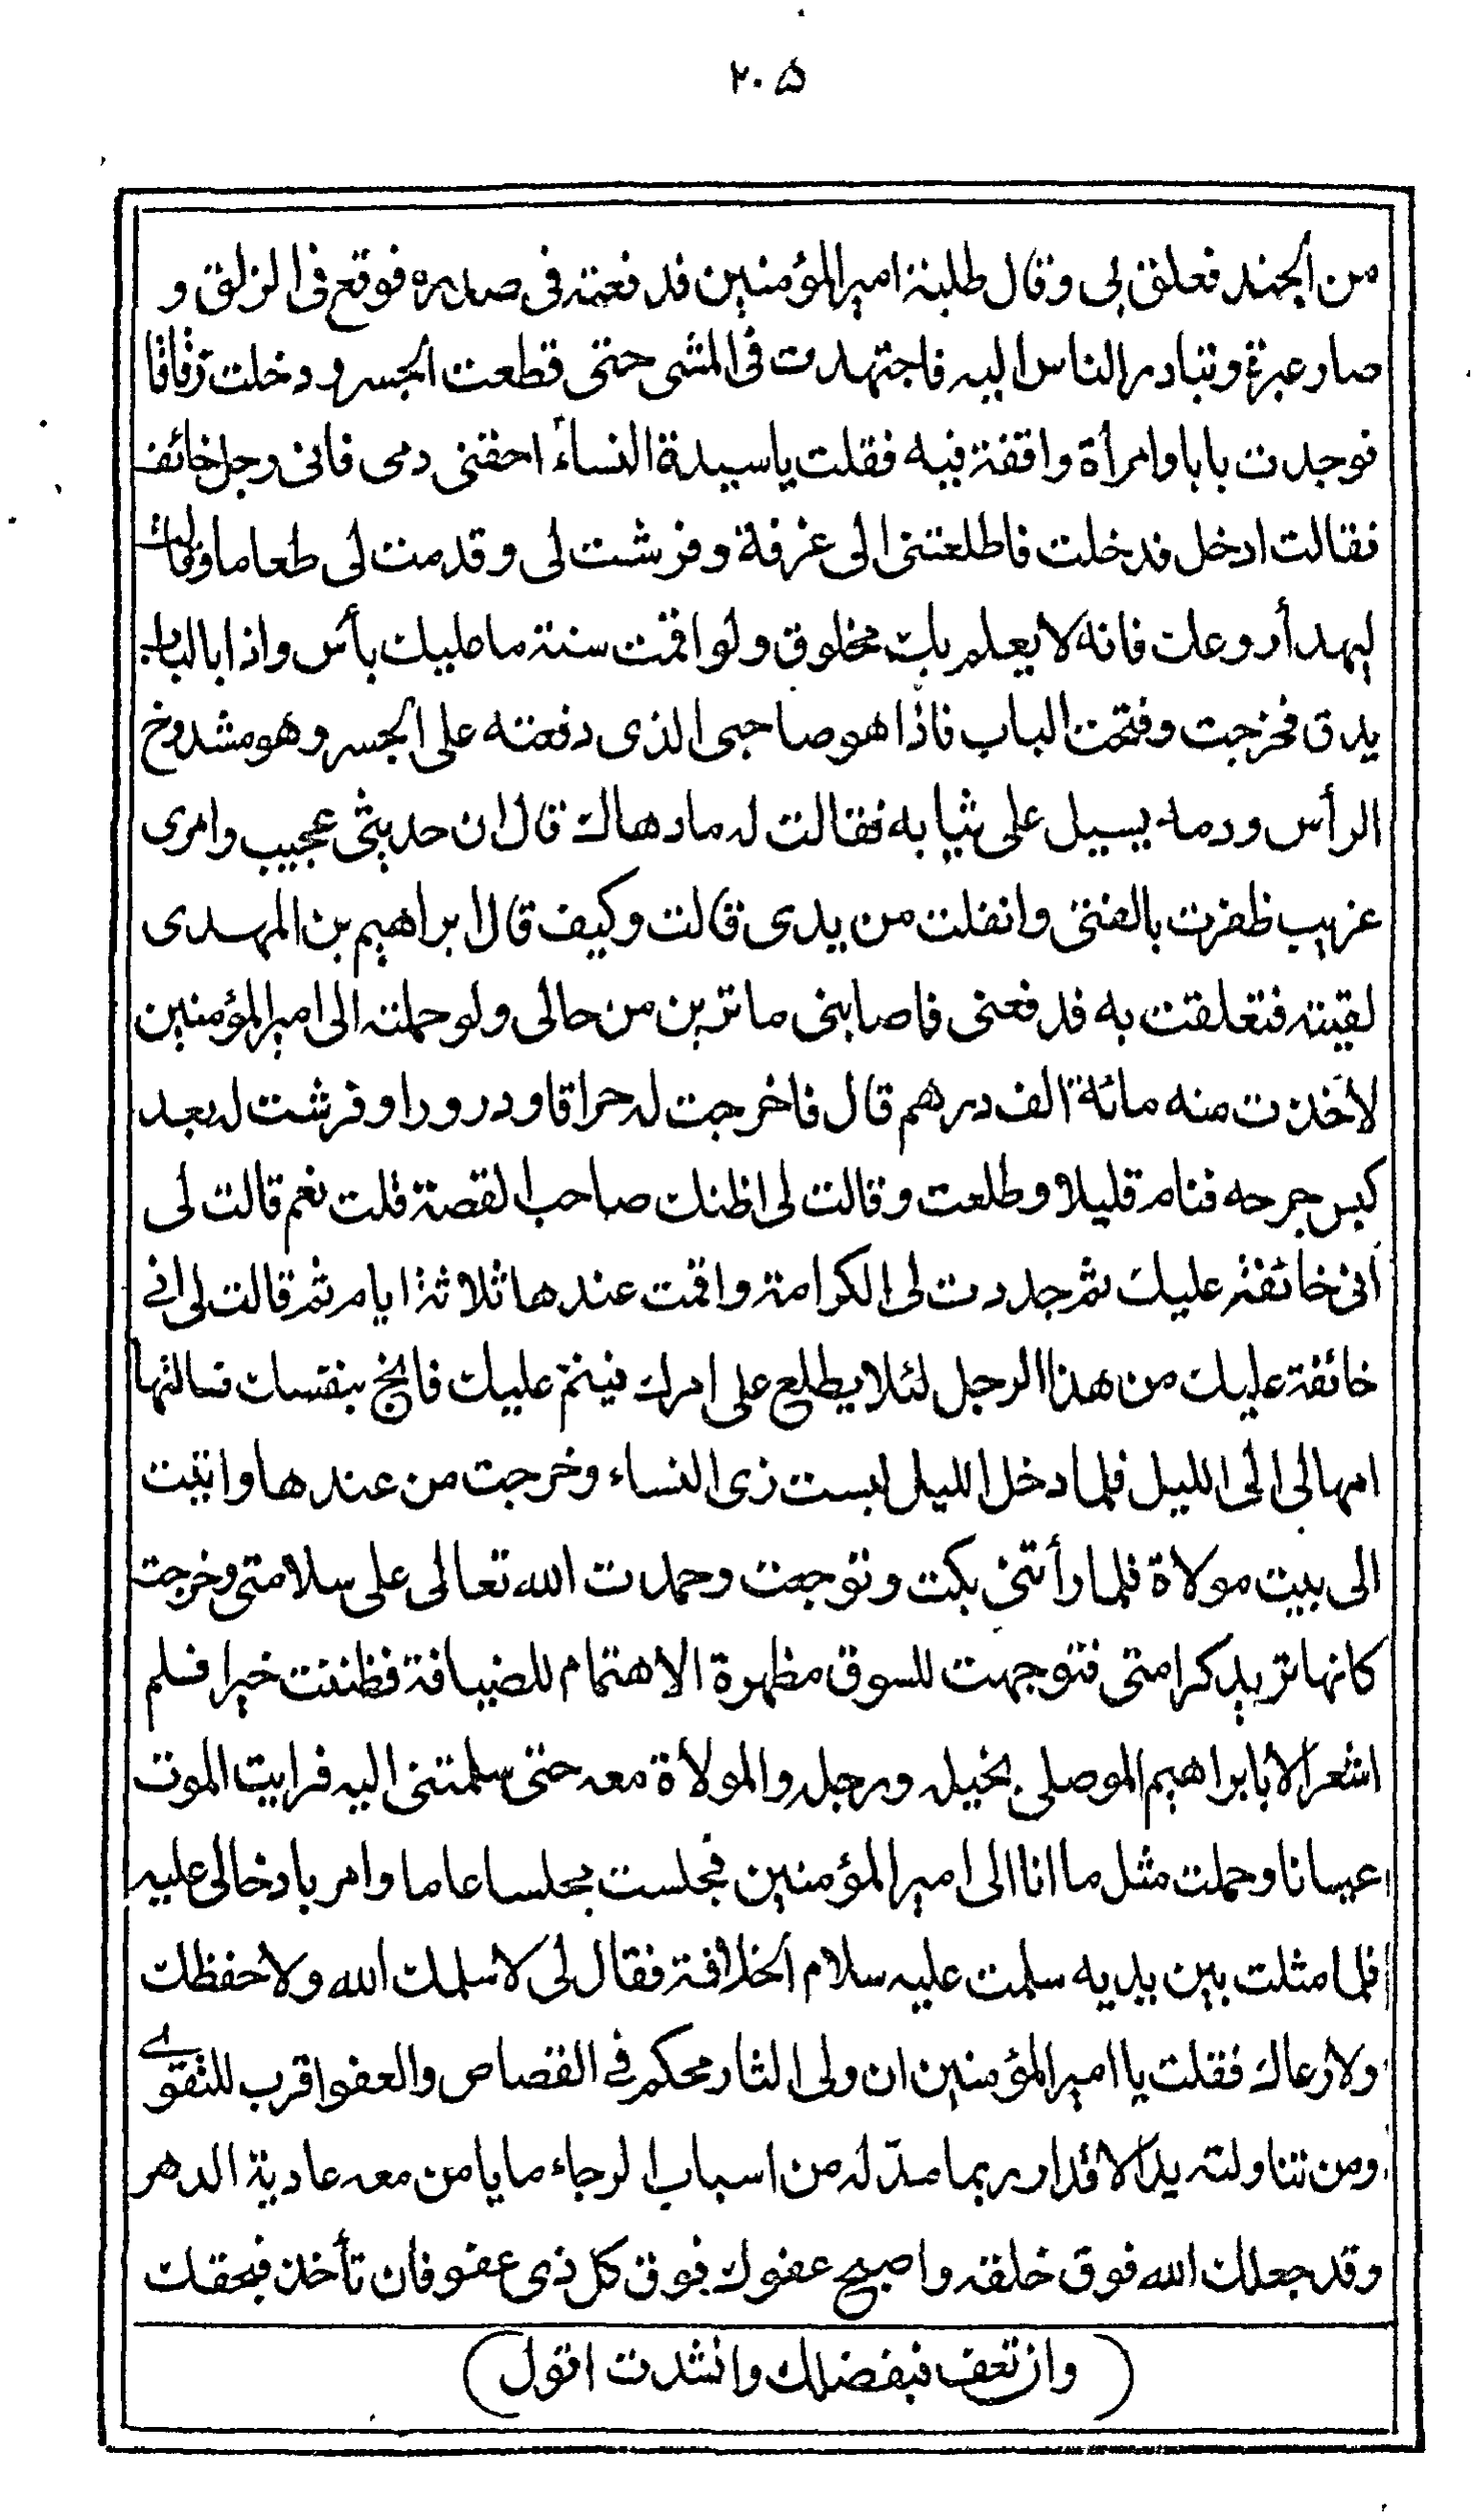 ٢٠٥
من الجند فعلق بى وقال طلبة امير المؤمنين فدفعته فى صدره فوقع فى الزلق و
صار عبرة وتبادر الناس اليه فاجتهدت فى المشى حتى قطعت الجسر ودخلت زقاقا
فوجدت بابا وامرأة واقفة فيه فقلت ياسيدة النساء احقنى دمى فانى رجل خائف
فقالت ادخل فدخلت فاطلعتنى الى غرفة وفرشت لى وقدمت لى طعاما وقالت
ليهدأ روعك فانه لا يعلم بك مخلوق ولو اقمت سنة ما عليك بأس واذا بالباب
يدق فخرجت وفتحت الباب فاذا هو صاحبى الذى دفعته على الجسر وهو مشدوخ
الرأس ودمه يسيل على ثيابه فقالت له ما دهاك قال ان حديثى عجيب وامرى
غريب ظفرت بالفتى وانفلت من يدى قالت وكيف قال ابراهيم بن المهدى
لقيته فتعلقت به فدفعنى فاصابنى ما ترين من حالى ولو حملته الى امير المؤمنين
لأخذت منه مائة الف درهم قال فاخرجت له حراقا ودرورا وفرشت له بعد
كبس جرحه فنام قليلا وطلعت وقالت لى اظنك صاحب القصة قلت نعم قالت لى
انى خائفة عليك ثم جددت لى الكرامة واقمت عندها ثلاثة ايام ثم قالت لى انى
خائفة عليك من هذا الرجل لئلا يطلع على امرك فينم عليك فانج بنفسك فسالتها
امهالى الى الليل فلما دخل الليل لبست زى النساء وخرجت من عندها واتيت
الى بيت مولاة فلما رأتنى بكت وتوجعت وحمدت الله تعالى على سلامتى وخرجت
كانها تريد كرامتى فتوجهت للسوق مظهرة الاهتمام للضيافة فظننت خيرا فلم
اشعر الا بابراهيم الموصلى بخيله ورجله والمولاة معه حتى سلمتنى اليه فرايت الموت
عيانا وحملت مثل ما انا الى امير المؤمنين فجلست مجلسا عاما وامر بادخالى عليه
فلما مثلت بين يديه سلمت عليه سلام الخلافة فقال لى لا سلمك الله ولا حفظك
ولا رعاك فقلت يا امير المؤمنين ان ولى الثار محكم فى القصاص والعفو اقرب للتقوى
ومن تناولته يد الاقدار بما مدّ له من اسباب الرجاء ما يامن معه عادية الدهر
وقد جعلك الله فوق خلقه واصبح عفوك فوق كل ذى عفو فان تأخذ فبحقك
(وان تعف فبفضلك وانشدت اقول)